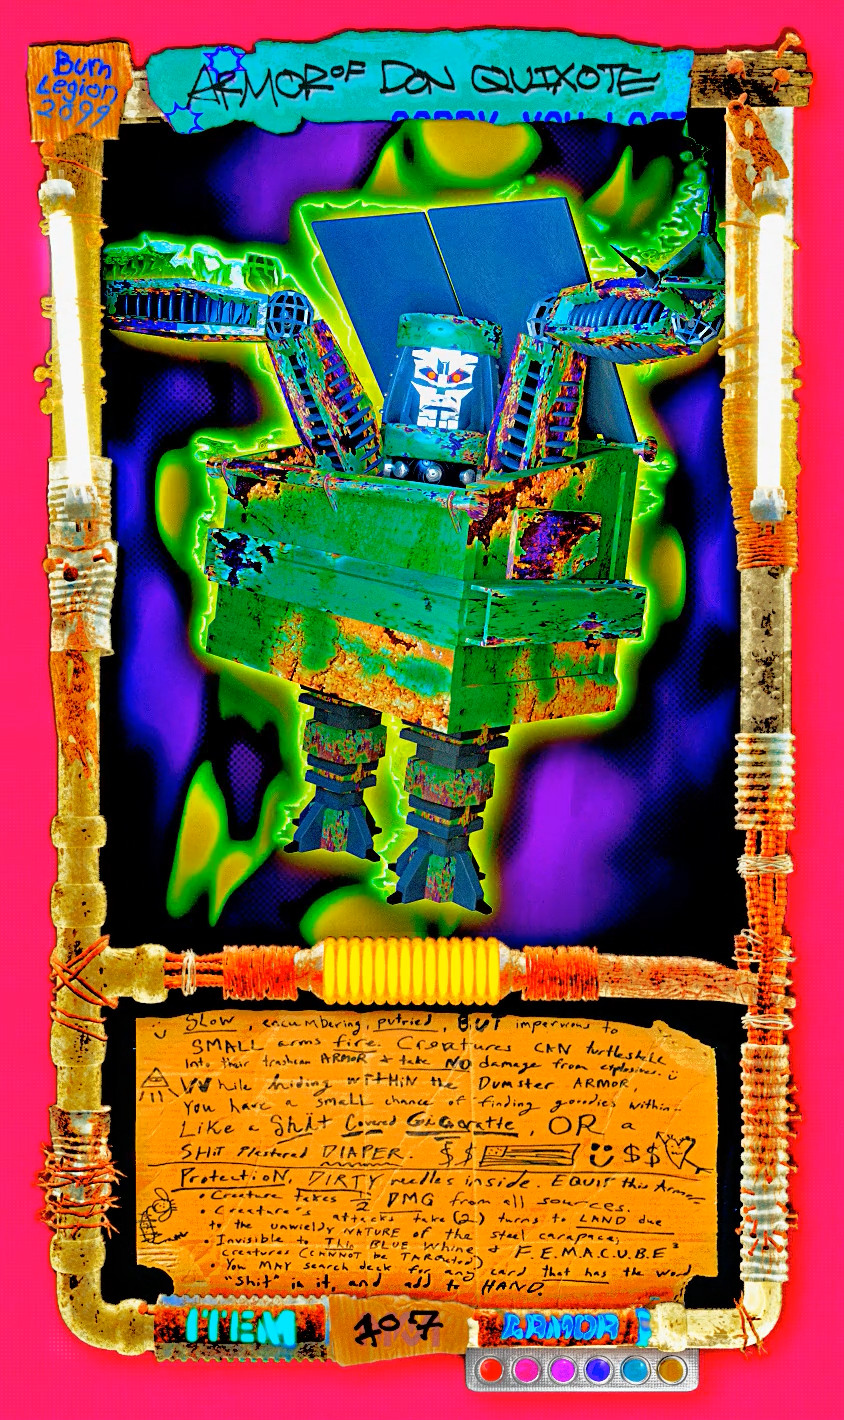 Burn
Legion
2899
ARMOR OF DON QUIXOTE
SORRY, YOU LOST
SLOW, encumbering, putried, BUT impervious to
SMALL arms fire. Creatures CAN turtleshell
into their trashcan ARMOR & take NO damage from explosives.
While hiding WITHIN the Dumster ARMOR,
You have a small chance of finding goodies within.
Like a Shit Covered Cigaratte, OR a
SHiT Plastured DIAPER. $$ $$
Protection, DIRTY needles inside. EQUIP this Armor
• Creature takes 1/2 DMG from all sources.
• Creature's attacks take (2) turns to LAND due
to the unwieldy NATURE of the steel carapace;
• Invisible to Thin BLUE Whine & F.E.M.A.C.U.B.E³
Creatures (CANNOT be TARGETED)
• You MAY search deck for any card that has the word
"Shit" in it, and add to HAND.
ITEM
107
ARMOR